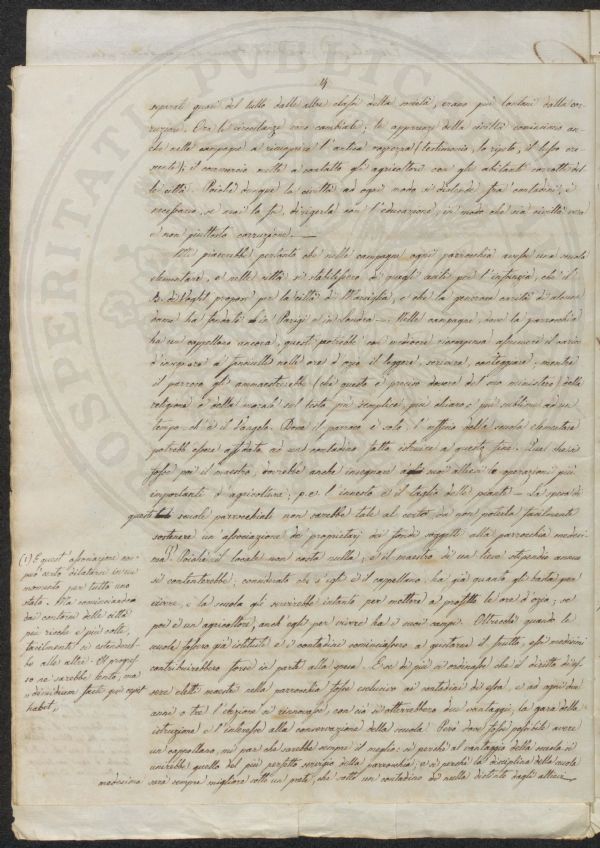 4
separati quasi del tutto dalle altre classi della società, erano più lontani dalla cor-
ruzione. Ora le circostanze sono cambiate; le apparenze della civiltà cominciano an-
che nelle campagne a ricuoprire l'antica rozzezza (testimonio, lo ripeto, il lusso cre-
scente); il commercio mette a contatto gli agricoltori con gli abitanti corrotti del-
le città. Poichè dunque la civiltà ad ogni modo si diffonde fra contadini, è
necessario, se mai lo fu, dirigerla con l'educazione, in modo che sia civiltà vera
e non piuttosto corruzione. —
Mi piacerebbe pertanto che nelle campagne ogni parrocchia avesse una scuola
elementare, e nelle città si stabilissero di quegli asili per l'infanzia, che il
B. di Voght propose per la città di Marsiglia, e che la generosa carità di alcune
donne ha fondati in Parigi e in Londra —. Nelle campagne, dove la parrocchia
ha un cappellano ancora, questi potrebbe con mediocre ricompensa assumere il carico
d'insegnare a' fanciulli nelle ore d'ozio il leggere, scrivere, conteggiare, mentre
il parroco gli ammaestrerebbe (che questo è preciso dovere del suo ministero) della
religione e della morale sul testo più semplice, più chiaro e più sublime ad un
tempo ch'è il Vangelo. Dove il parroco è solo l'uffizio della scuola elementare
potrebb'essere affidato ad un contadino fatto istruire a questo fine. Qual che si
fosse poi il maestro, dovrebbe anche insegnare a' suoi allievi le operazioni più
importanti d'agricoltura; p. e. l'innesto e il taglio delle piante — La spesa di
queste scuole parrocchiali non sarebbe tale al certo da non poterla facilmente
sostenere un'associazione de' proprietarj dei fondi soggetti alla parrocchia medesi-
ma (1) Poichè il locale non costa nulla; e il maestro di un lieve stipendio annuo
si contenterebbe; considerato che s'egli è il cappellano, ha già quanto gli basta per
vivere, e la scuola gli servirebbe intanto per mettere a profitto le ore d'ozio; se
poi è un agricoltore, anch'egli per vivere ha i suoi mezzi. Oltrechè quando le
scuole fossero già istituite e i contadini cominciassero a gustarne il frutto, essi medesimi
contribuirebbero forse in parte alla spesa. E se di più si ordinasse che il diritto d'es-
sere eletti maestri nella parrocchia fosse esclusivo ai contadini di essa, e ad ogni due
anni o tre l'elezione si rinnovasse, con ciò si otterrebbero due vantaggi, la gara della
istruzione e l'interesse alla conservazione della scuola. Però dove fosse possibile avere
un cappellano, mi par che sarebbe sempre il meglio: sì perchè al vantaggio della scuola si
unirebbe quello del più perfetto servigio della parrocchia; e sì perchè la disciplina della scuola
medesima sarà sempre migliore sotto un prete, che sotto un contadino da nulla distinto dagli allievi —
(1) E quest'associazione non
può certo dilatarsi in un
momento per tutto uno
stato. Ma cominciando
dai contorni delle città
più ricche e più colte,
facilmente si estendereb-
be alle altri. Il progres-
so ne sarebbe lento, ma
«dimidium facti qui coepit
habet„
PROSPERITATI PUBLICAE